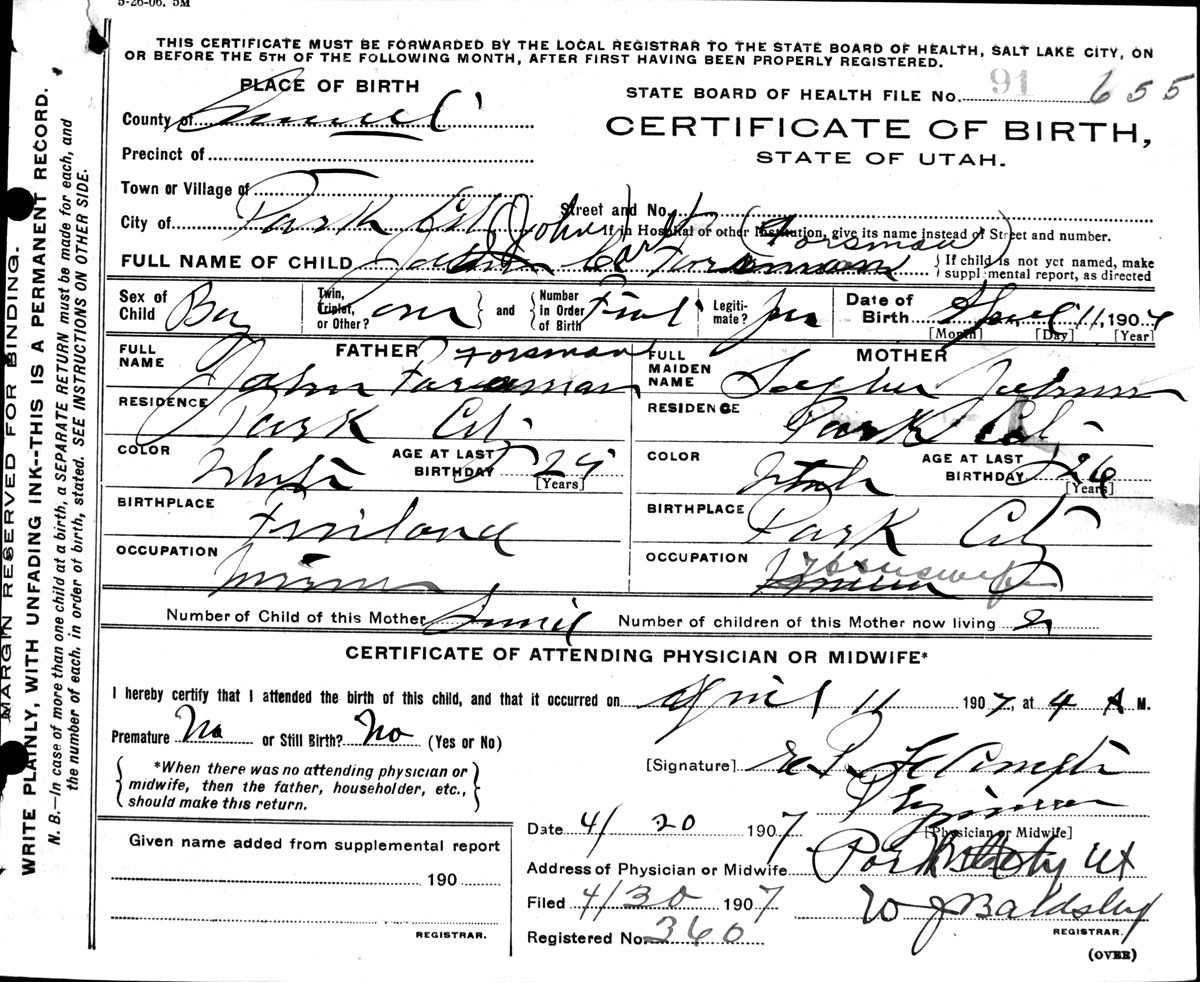 5-26-06. 5M
THIS CERTIFICATE MUST BE FORWARDED BY THE LOCAL REGISTRAR TO THE STATE BOARD OF HEALTH, SALT LAKE CITY, ON
OR BEFORE THE 5TH OF THE FOLLOWING MONTH, AFTER FIRST HAVING BEEN PROPERLY REGISTERED.
PLACE OF BIRTH
STATE BOARD OF HEALTH FILE No. 91 655
County of Summit
CERTIFICATE OF BIRTH,
STATE OF UTAH.
Precinct of
Town or Village of
City of Park City
Street and No.
If in Hospital or other Institution, give its name instead of Street and number.
(John) (Forsman)
FULL NAME OF CHILD Forsman
If child is not yet named, make
supplmental report, as directed
Sex of Child Boy
Twin, Triplet, or Other? one and Number In Order of Birth First
Legiti-mate? yes
Date of Birth April 11, 1907
[Month] [Day] [Year]
FATHER
Forsman
FULL NAME John Forsman
RESIDENCE Park City
COLOR White
AGE AT LAST BIRTHDAY
[Years]
BIRTHPLACE Finland
OCCUPATION Miner
MOTHER
FULL MAIDEN NAME
RESIDENCE Park City
COLOR
AGE AT LAST BIRTHDAY 26
[Years]
BIRTHPLACE Park City
OCCUPATION Housewife
Number of Child of this Mother
Number of children of this Mother now living 2
CERTIFICATE OF ATTENDING PHYSICIAN OR MIDWIFE*
I hereby certify that I attended the birth of this child, and that it occurred on April 11 1907, at 4 A M.
Premature No or Still Birth? No (Yes or No)
*When there was no attending physician or
midwife, then the father, householder, etc.,
should make this return.
[Signature]
[Physician or Midwife]
Date 4/20 1907
Address of Physician or Midwife Park City Ut
Filed 4/30 1907
W J Bardsley
REGISTRAR.
Registered No. 360
(OVER)
Given name added from supplemental report
190
REGISTRAR.
MARGIN RESERVED FOR BINDING.
WRITE PLAINLY, WITH UNFADING INK--THIS IS A PERMANENT RECORD.
N. B.—In case of more than one child at a birth, a SEPARATE RETURN must be made for each, and
the number of each. in order of birth, stated. SEE INSTRUCTIONS ON OTHER SIDE.